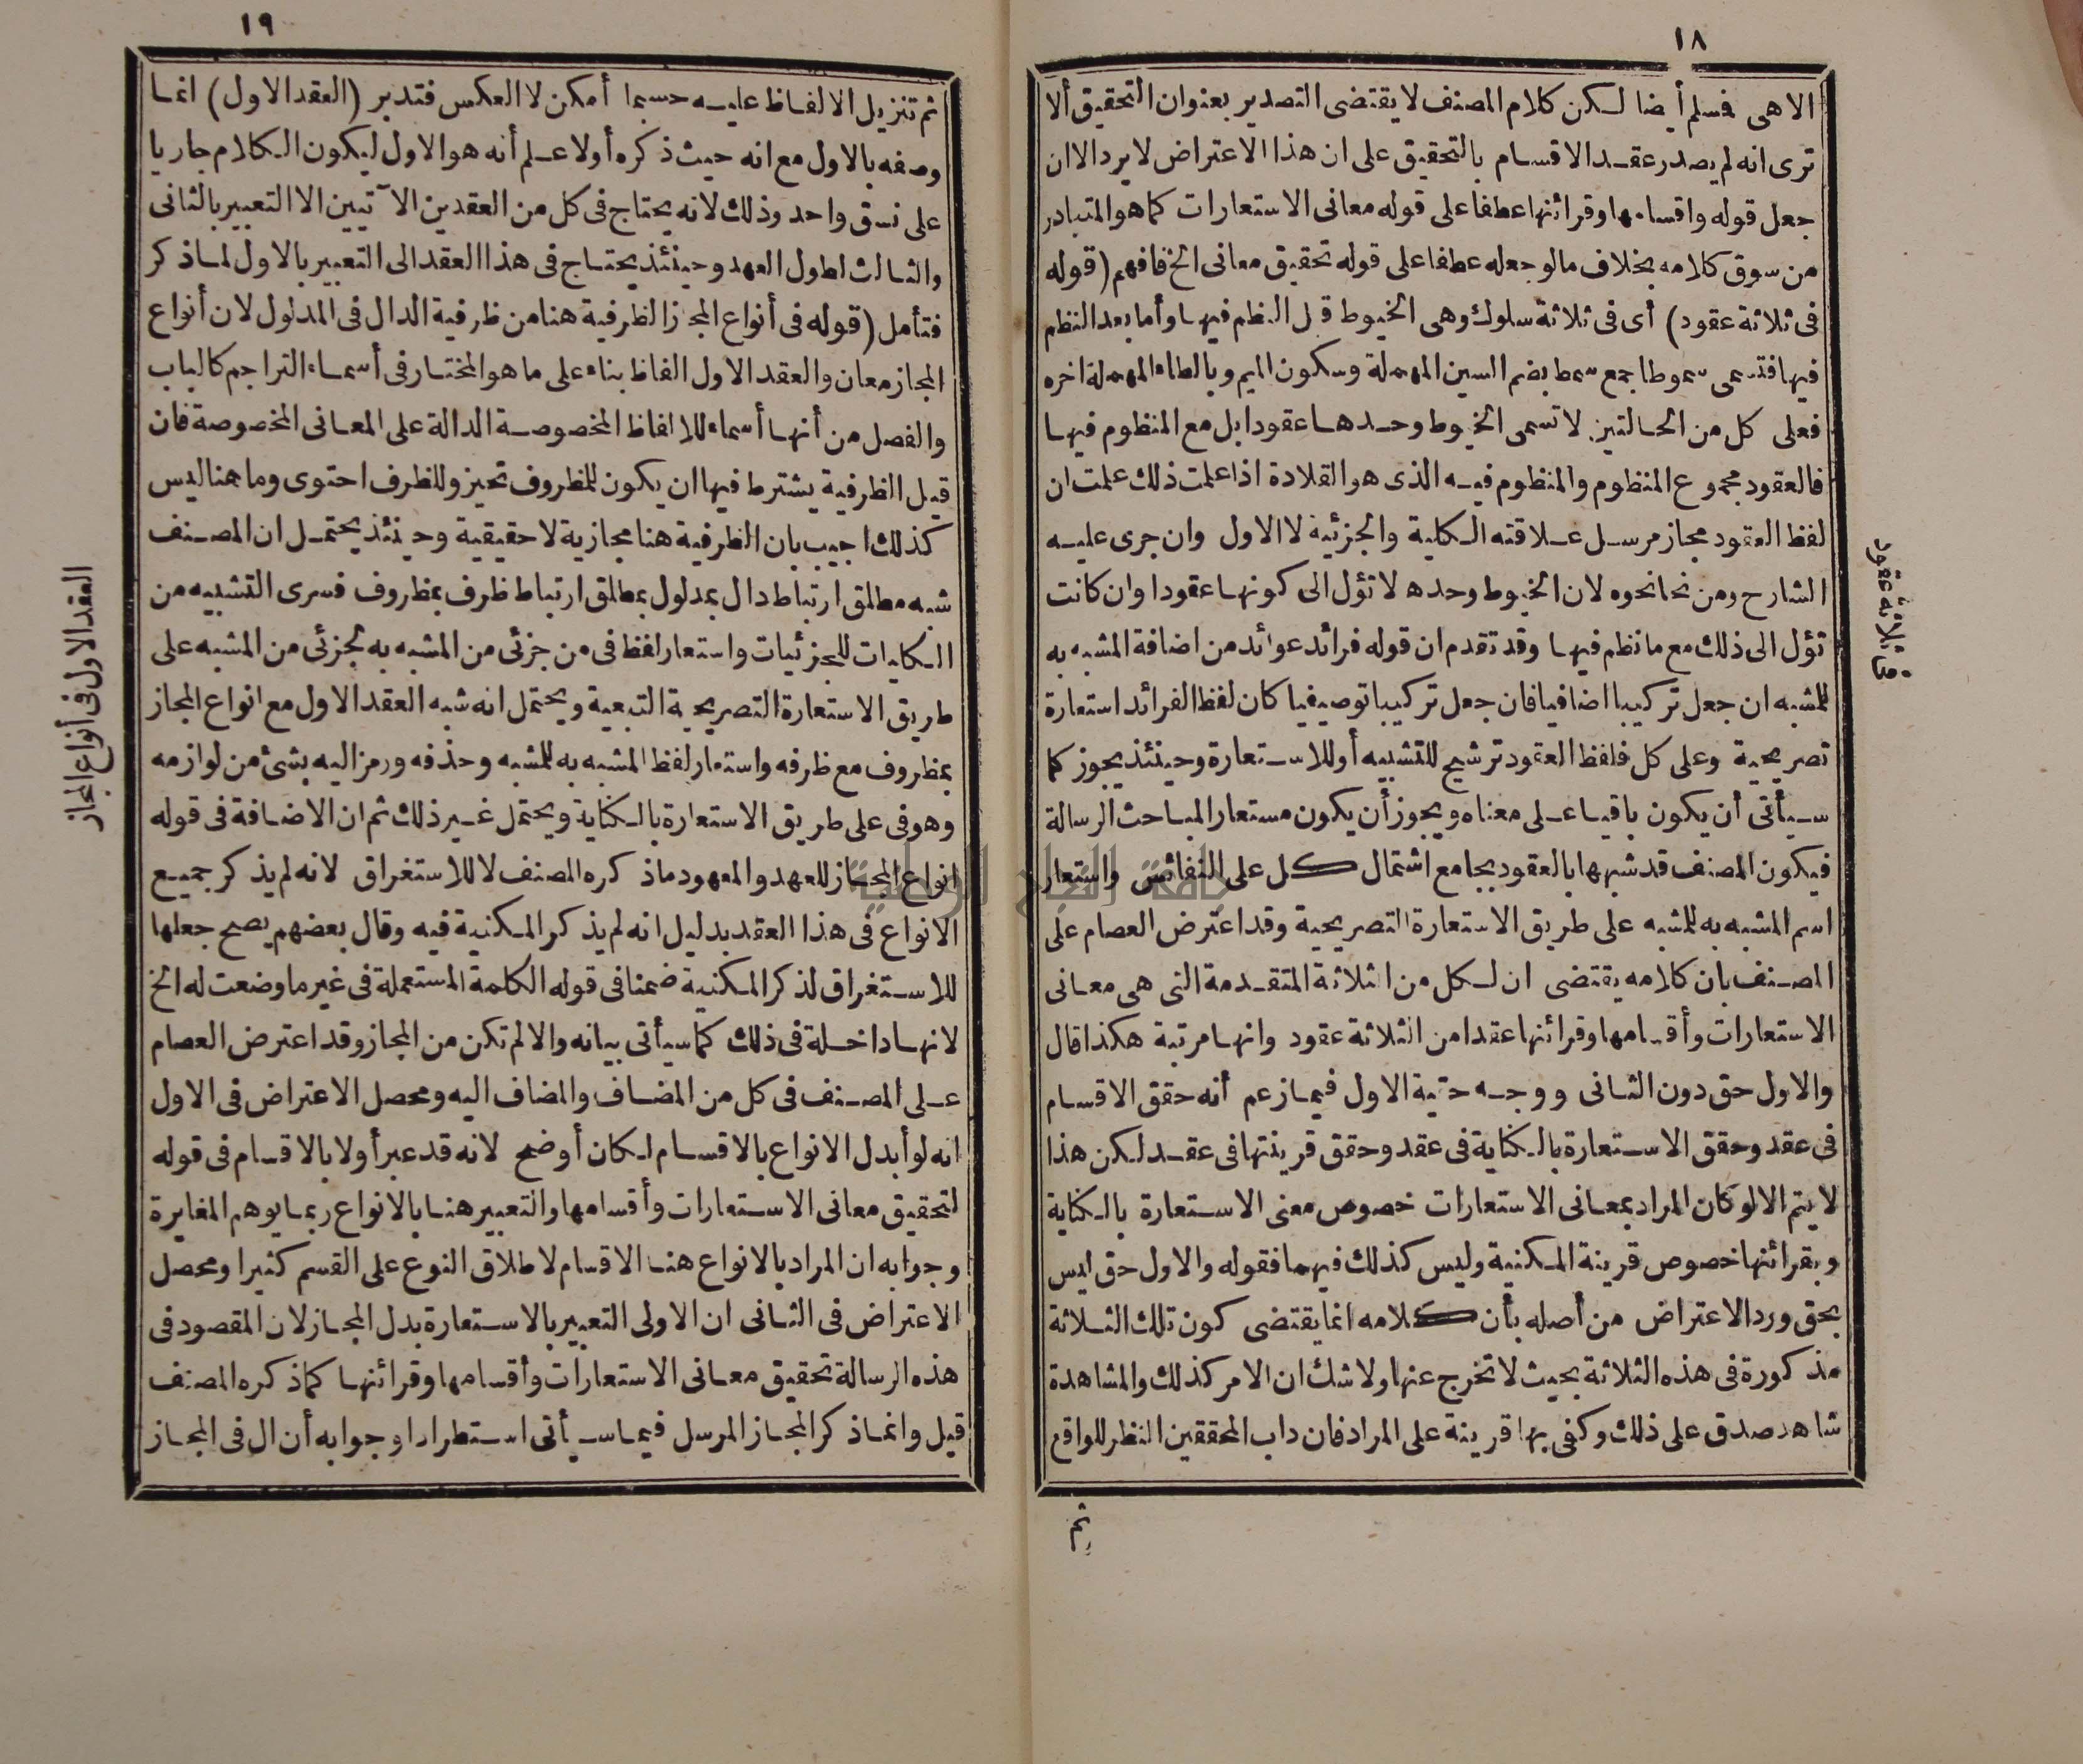 ١٨
الا هى فسلم أيضا لكن كلام المصنف لا يقتضى التصدير بعنوان التحقيق ألا
ترى انه لم يصدر عقد الاقسام بالتحقيق على ان هذا الاعتراض لا يرد الا ان
جعل قوله واقسامها وقرائنها عطفا على قوله معانى الاستعارات كما هو المتبادر
من سوق كلامه بخلاف ما لو جعله عطفا على قوله تحقيق معانى الخ فافهم (قوله
فى ثلاثة عقود) أى فى ثلاثة سلوك وهى الخيوط قبل النظم فيها وأما بعد النظم
فيها فتسمى سموطا جمع سمط بضم السين المهملة وسكون الميم وبالطاء المهملة اخره
فعلى كل من الحالتين لا تسمى الخيوط وحدها عقودا بل مع المنظوم فيها
فالعقود مجموع المنظوم والمنظوم فيه الذى هو القلادة اذا علمت ذلك علمت ان
لفظ العقود مجاز مرسل علاقته الكلية والجزئية لا الاول وان جرى عليه
الشارح ومن نحا نحوه لان الخيوط وحدها لا تؤل الى كونها عقودا وان كانت
تؤل الى ذلك مع ما نظم فيها وقد تقدم ان قوله فرائد عوائد من اضافة المشبه به
للمشبه ان جعل تركيبا اضافيا فان جعل تركيبا توصيفيا كان لفظ الفرائد استعارة
تصريحية وعلى كل فلفظ العقود ترشيح للتشبيه أو للاستعارة وحينئذ يجوز كما
سيأتى أن يكون باقيا على معناه ويجوز أن يكون مستعارا لمباحث الرسالة
فيكون المصنف قد شبهها بالعقود بجامع اشتمال كل على النفائس واستعار
اسم المشبه به للمشبه على طريق الاستعارة التصريحية وقد اعترض العصام على
المصنف بان كلامه يقتضى ان لكل من الثلاثة المتقدمة التى هى معانى
الاستعارات وأقسامها وقرائنها عقدا من الثلاثة عقود وانها مرتبة هكذا قال
والاول حق دون الثانى ووجه حقية الاول فيما زعم أنه حقق الاقسام
فى عقد وحقق الاستعارة بالكناية فى عقد وحقق قرينتها فى عقد لكن هذا
لا يتم الا لو كان المراد بمعانى الاستعارات خصوص معنى الاستعارة بالكناية
وبقرائنها خصوص قرينة المكنية وليس كذلك فيهما فقوله والاول حق ليس
بحق ورد الاعتراض من أصله بأن كلامه انما يقتضى كون تلك الثلاثة
مذكورة فى هذه الثلاثة بحيث لا تخرج عنها ولا شك ان الامر كذلك والمشاهدة
شاهد صدق على ذلك وكفى بها قرينة على المراد فان داب المحققين النظر للواقع
ثم
فى ثلاثة عقود
١٩
ثم تنزيل الالفاظ عليه حسبما أمكن لا العكس فتدبر (العقد الاول) انما
وصفه بالاول مع انه حيث ذكره أولا علم أنه هو الاول ليكون الكلام جاريا
على نسق واحد وذلك لانه يحتاج فى كل من العقدين الآتيين الا التعبير بالثانى
والثالث لطول العهد وحينئذ يحتاج فى هذا العقد الى التعبير بالاول لما ذكر
فتأمل (قوله فى أنواع المجاز) الظرفية هنا من ظرفية الدال فى المدلول لان أنواع
المجاز معان والعقد الاول الفاظ بناء على ما هو المختار فى أسماء التراجم كالباب
والفصل من أنها أسماء للالفاظ المخصوصة الدالة على المعانى المخصوصة فان
قيل الظرفية يشترط فيها ان يكون للمظروف تحيز وللظرف احتوى وما هنا ليس
كذلك اجيب بان الظرفية هنا مجازية لا حقيقية وحينئذ يحتمل ان المصنف
شبه مطلق ارتباط دال بمدلول بمطلق ارتباط ظرف بمظروف فسرى التشبيه من
الكليات للجزئيات واستعار لفظ فى من جزئى من المشبه به لجزئى من المشبه على
طريق الاستعارة التصريحية التبعية ويحتمل انه شبه العقد الاول مع انواع المجاز
بمظروف مع ظرفه واستعار لفظ المشبه به للمشبه وحذفه ورمز اليه بشئ من لوازمه
وهو فى على طريق الاستعارة بالكناية ويحتمل غير ذلك ثم ان الاضافة فى قوله
انواع المجاز للعهد والمعهود ما ذكره المصنف لا للاستغراق لانه لم يذكر جميع
الانواع فى هذا العقد بدليل انه لم يذكر المكنية فيه وقال بعضهم يصح جعلها
للاستغراق لذكر المكنية ضمنا فى قوله الكلمة المستعملة فى غير ما وضعت له الخ
لانها داخلة فى ذلك كما سيأتى بيانه والا لم تكن من المجاز وقد اعترض العصام
على المصنف فى كل من المضاف والمضاف اليه ومحصل الاعتراض فى الاول
انه لو أبدل الانواع بالاقسام لكان أوضح لانه قد عبر أولا بالاقسام فى قوله
لتحقيق معانى الاستعارات وأقسامها والتعبير هنا بالانواع ربما يوهم المغايرة
وجوابه ان المراد بالانواع هنا الاقسام لاطلاق النوع على القسم كثيرا ومحصل
الاعتراض فى الثانى ان الاولى التعبير بالاستعارة بدل المجاز لان المقصود فى
هذه الرسالة تحقيق معانى الاستعارات وأقسامها وقرائنها كما ذكره المصنف
قيل وانما ذكر المجاز المرسل فيما سيأتى استطرادا وجوابه أن ال فى المجاز
العقد الاول فى أنواع المجاز
جامعة النجاح الوطنية